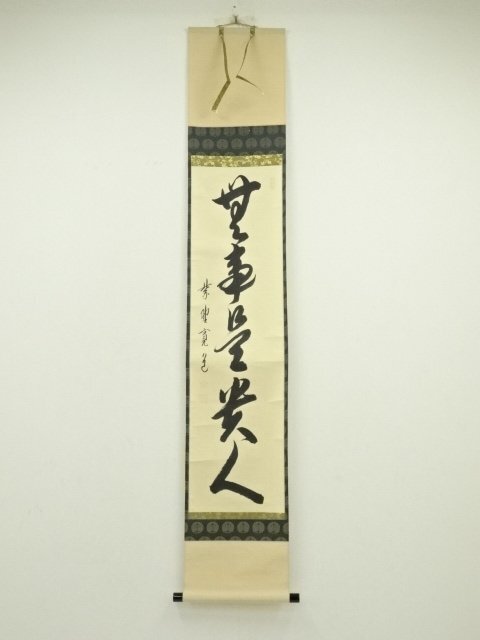 無事是貴人
紫野寛道